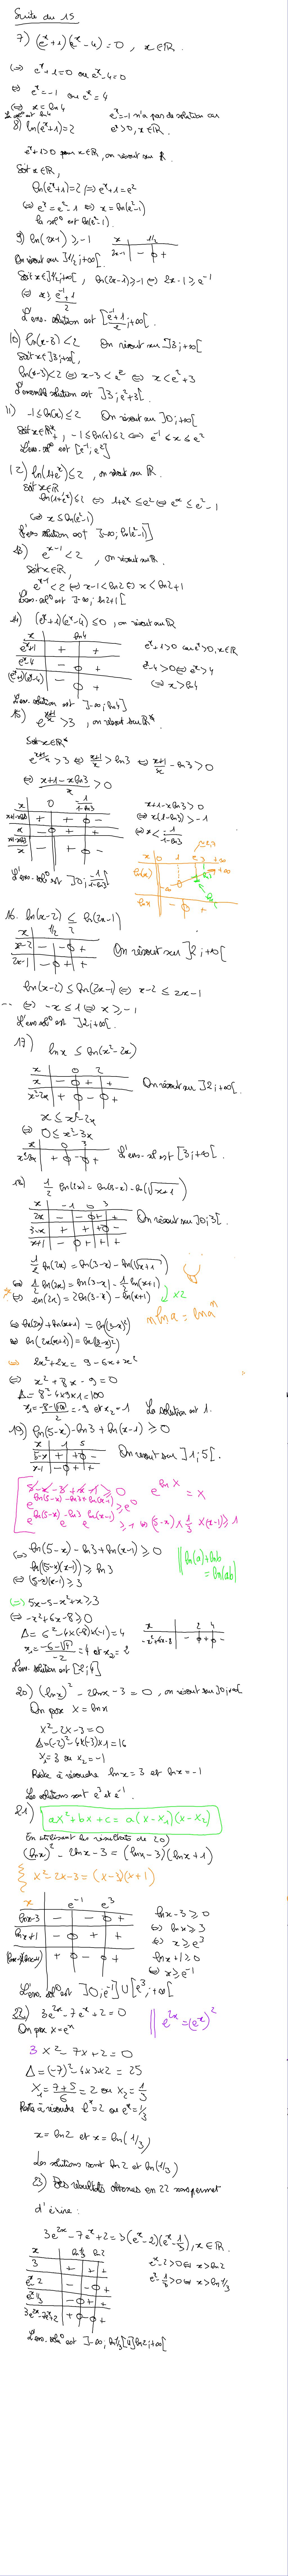 Suite du 15
7) (eˣ+1)(eˣ-4)=0 , x∈ℝ.
⇔ eˣ+1=0 ou eˣ-4=0
⇔ eˣ=-1 ou eˣ=4
eˣ=-1 n'a pas de solution car
⇔ x=ln4
eˣ>0, x∈ℝ.
La sol° est ln4
8) ln(eˣ+1)=2
eˣ+1>0 pour x∈ℝ, on résout sur ℝ.
Soit x∈ℝ,
ln(eˣ+1)=2 ⇔ eˣ+1=e²
⇔ eˣ=e²-1 ⇔ x=ln(e²-1)
la sol° est ln(e²-1).
9) ln(2x-1) ≥ -1
x 1/2
2x-1 - 0 +
On résout sur ]1/2;+∞[.
Soit x∈]1/2;+∞[, ln(2x-1)≥-1 ⇔ 2x-1≥e⁻¹
⇔ x≥ (e⁻¹+1)/2
L'ens. solution est [(e⁻¹+1)/2;+∞[.
10) ln(x-3)<2 On résout sur ]3;+∞[
Soit x∈]3;+∞[,
ln(x-3)<2 ⇔ x-3<e² ⇔ x<e²+3
L'ensemble solution est ]3;e²+3[.
11) -1≤ln(x)≤2 On résout sur ]0;+∞[
Soit x∈ℝ*₊, -1≤ln(x)≤2 ⇔ e⁻¹≤x≤e²
L'ens. sol° est [e⁻¹;e²]
12) ln(1+eˣ)≤2 , on résout sur ℝ.
Soit x∈ℝ
ln(1+eˣ)≤2 ⇔ 1+eˣ≤e² ⇔ eˣ≤e²-1
⇔ x≤ln(e²-1)
l'ens solution est ]-∞;ln(e²-1)]
13) eˣ⁻¹<2 , on résout sur ℝ.
Soit x∈ℝ,
eˣ⁻¹<2 ⇔ x-1<ln2 ⇔ x<ln2+1
L'ens. sol° est ]-∞;ln2+1[
14) (eˣ+1)(eˣ-4)≤0 , on résout sur ℝ
x ln4
eˣ+1 + +
eˣ+1>0 car eˣ>0, x∈ℝ
eˣ-4 - 0 +
eˣ-4>0 ⇔ eˣ>4
(eˣ+1)(eˣ-4) - 0 +
⇔ x>ln4
L'ens. solution est ]-∞;ln4]
15) e^((x+1)/x) >3 , on résout sur ℝ*
Soit x∈ℝ*
e^((x+1)/x) >3 ⇔ (x+1)/x > ln3 ⇔ (x+1)/x - ln3>0
⇔ (x+1-xln3)/x >0
x 0 -1/(1-ln3)
x+1-xln3>0
x+1-xln3 + + 0 -
⇔ x(1-ln3)>-1
x - 0 + +
⇔ x< -1/(1-ln3)
(x+1-xln3)/x - + 0 -
L'ens. sol° est ]0; -1/(1-ln3)[
x 0 1 e 3 +∞
ln(x) -∞ 0 1 ln3 +∞
lnx - 0 +
16. ln(x-2) ≤ ln(2x-1)
x 1/2 2
x-2 - - 0 +
On résout sur ]2;+∞[
2x-1 - 0 + +
ln(x-2)≤ln(2x-1) ⇔ x-2≤2x-1
⇔ -x≤1 ⇔ x≥-1
L'ens sol° est ]2;+∞[.
17) lnx ≤ ln(x²-2x)
x 0 2
x - 0 + +
On résout sur ]2;+∞[.
x²-2x + 0 - 0 +
x≤x²-2x
⇔ 0≤x²-3x
x 0 3
x²-3x + 0 - 0 +
L'ens. sol est [3;+∞[.
18) 1/2 ln(2x)=ln(3-x)-ln(√(x+1))
x -1 0 3
2x - - 0 + +
On résout sur ]0;3[.
3-x + + + 0 -
x+1 - 0 + + +
1/2 ln(2x)=ln(3-x)-ln(√(x+1))
⇔ 1/2 ln(2x)=ln(3-x)-1/2 ln(x+1)
x2
⇔ ln(2x)=2ln(3-x)-ln(x+1)
n ln a = ln aⁿ
⇔ ln(2x)+ln(x+1)=ln((3-x)²)
⇔ ln(2x(x+1))=ln((3-x)²)
⇔ 2x²+2x = 9-6x+x²
⇔ x²+8x-9=0
Δ=8²-4×9×1=100
x₁=(-8-√100)/2=-9 et x₂=1 La solution est 1.
19) ln(5-x)-ln3+ln(x-1)≥0
x 1 5
5-x + + 0 -
On résout sur ]1;5[.
x-1 - 0 + +
e^(ln(5-x)-ln3+ln(x-1)) ≥ e⁰
e^(lnX) = X
⇔ (5-x)×1/3×(x-1)≥1
⇔ ln(5-x)-ln3+ln(x-1)≥0
ln(a)+lnb
=ln(ab)
ln((5-x)(x-1))≥ln3
⇔ (5-x)(x-1)≥3
⇔ 5x-5-x²+x≥3
⇔ -x²+6x-8≥0
Δ=6²-4×(-8)×(-1)=4
x 2 4
-x²+6x-8 - 0 + 0 -
x₁=(-6-√4)/-2=4 et x₂=2
L'ens. solution est [2;4]
20) (lnx)²-2lnx-3=0 , on résout sur ]0;+∞[
On pose X=lnx
X²-2X-3=0
Δ=(-2)²-4×(-3)×1=16
X₁=3 ou X₂=-1
Reste à résoudre lnx=3 et lnx=-1
Les solutions sont e³ et e⁻¹.
21) aX²+bX+c=a(X-X₁)(X-X₂)
En utilisant les résultats de 20)
(lnx)²-2lnx-3=(lnx-3)(lnx+1)
X²-2X-3=(X-3)(X+1)
x e⁻¹ e³
lnx-3 - - 0 +
lnx-3≥0
⇔ lnx≥3
lnx+1 - 0 + +
⇔ x≥e³
lnx+1≥0
(lnx-3)(lnx+1) + 0 - 0 +
⇔ x≥e⁻¹
L'ens. sol° est ]0;e⁻¹]∪[e³;+∞[
22) 3e²ˣ-7eˣ+2=0
e²ˣ=(eˣ)²
On pose X=eˣ
3X²-7X+2=0
Δ=(-7)²-4×3×2=25
X₁=(7+5)/6=2 ou X₂=1/3
Reste à résoudre eˣ=2 ou eˣ=1/3
x=ln2 et x=ln(1/3)
Les solutions sont ln2 et ln(1/3)
23) Les résultats obtenus en 22 nous permet
d'écrire :
3e²ˣ-7eˣ+2=3(eˣ-2)(eˣ-1/3), x∈ℝ.
x ln1/3 ln2
3 + + +
eˣ-2>0 ⇔ x>ln2
eˣ-2 - - 0 +
eˣ-1/3>0 ⇔ x>ln1/3
eˣ-1/3 - 0 + +
3e²ˣ-7eˣ+2 + 0 - 0 +
L'ens. sol° est ]-∞;ln1/3[∪]ln2;+∞[